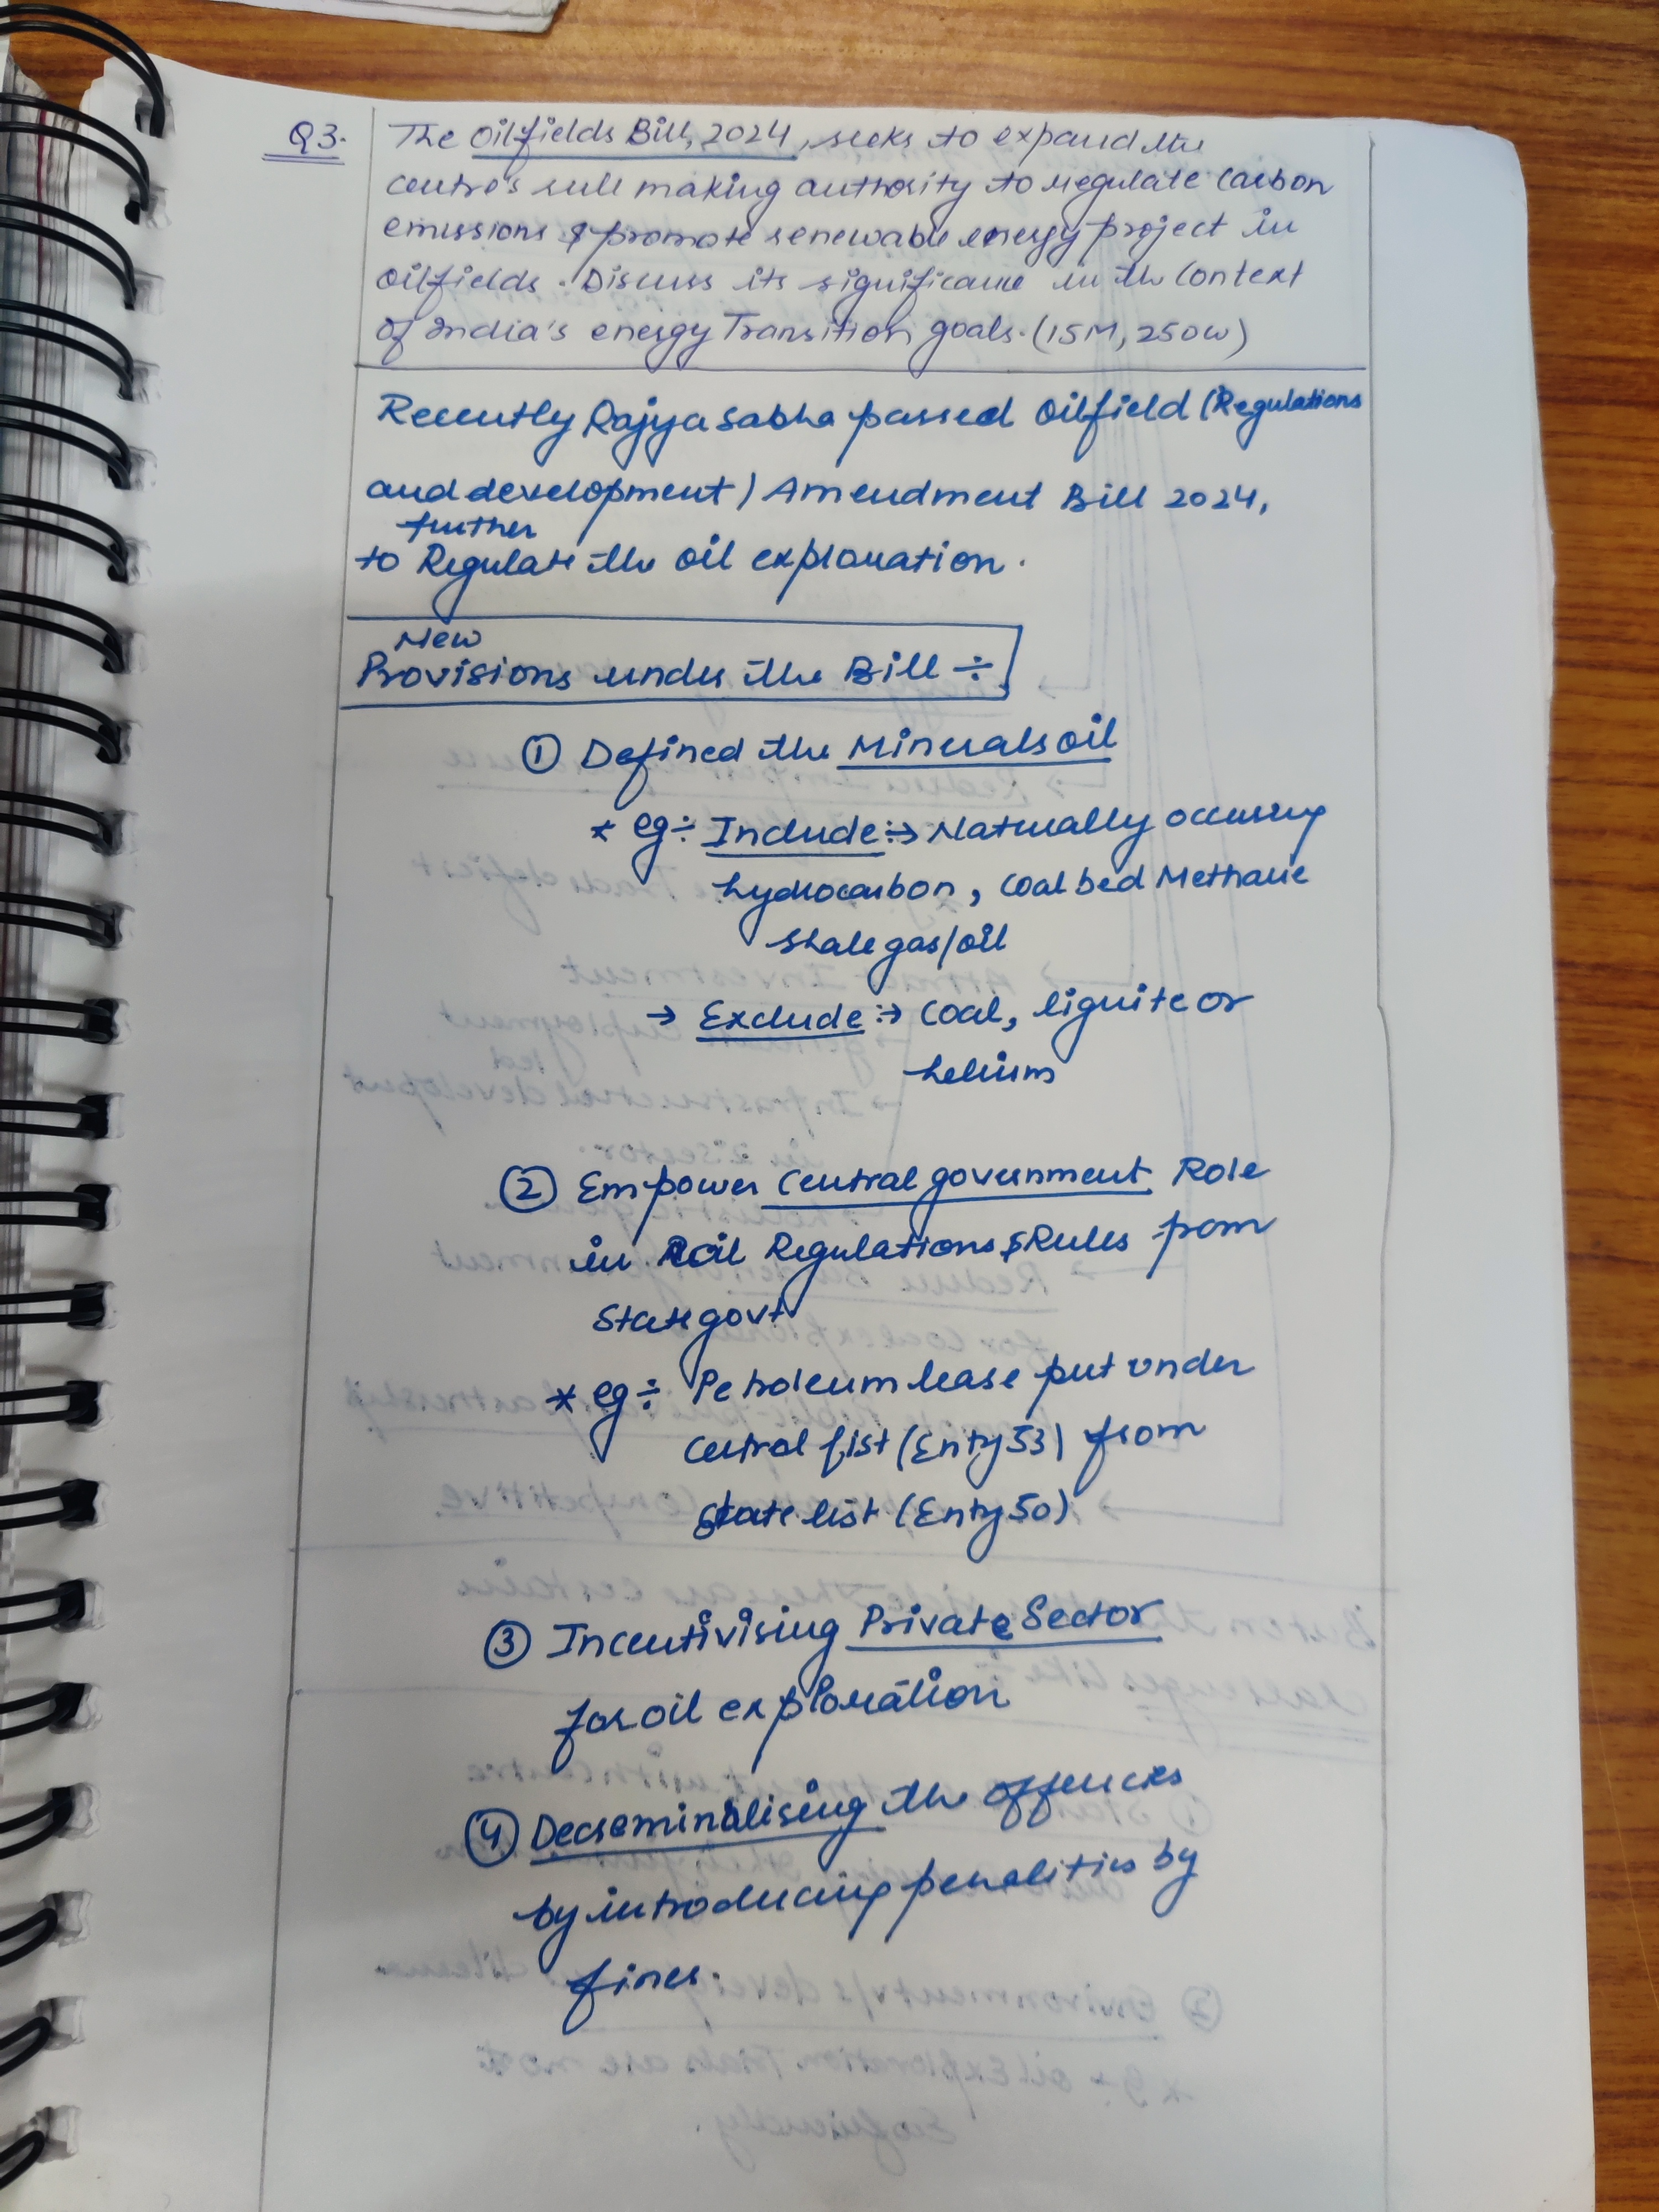 Q3. The Oilfields Bill, 2024, seeks to expand the
centre's rule making authority to regulate carbon
emissions & promote renewable energy project in
oilfields. Discuss its significance in the context
of India's energy Transition goals. (15M, 250W)
Recently Rajya Sabha passed Oilfield (Regulations
and development) Amendment Bill 2024,
further
to Regulate the oil exploration.
New
Provisions under the Bill ÷
① Defined the Minerals oil
* eg ÷ Include :→ Naturally occuring
hydrocarbon, Coal bed Methane
Shale gas/oil
→ Exclude :→ Coal, lignite or
helium
② Empower Central government Role
in Oil Regulations & Rules from
State govt
* eg ÷ Petroleum lease put under
Central list (Enty 53) from
State list (Enty 50)
③ Incentivising Private Sector
for oil exploration
④ Decreminalising the offences
by introducing penalities by
fines.